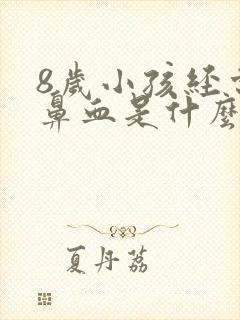 8歲小孩經
鼻血是什麼
夏丹荔